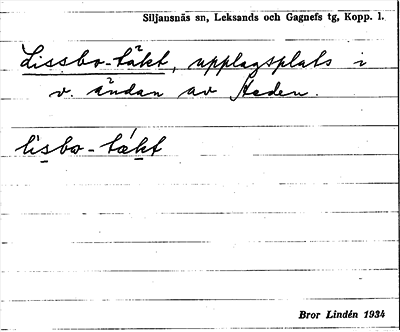 Siljansnäs sn, Leksands och Gagnefs tg, Kopp. l.
Lissbo-täkt, upplagsplats i
v. ändan av Heden.
lisbo-tækt
Bror Lindén 1934